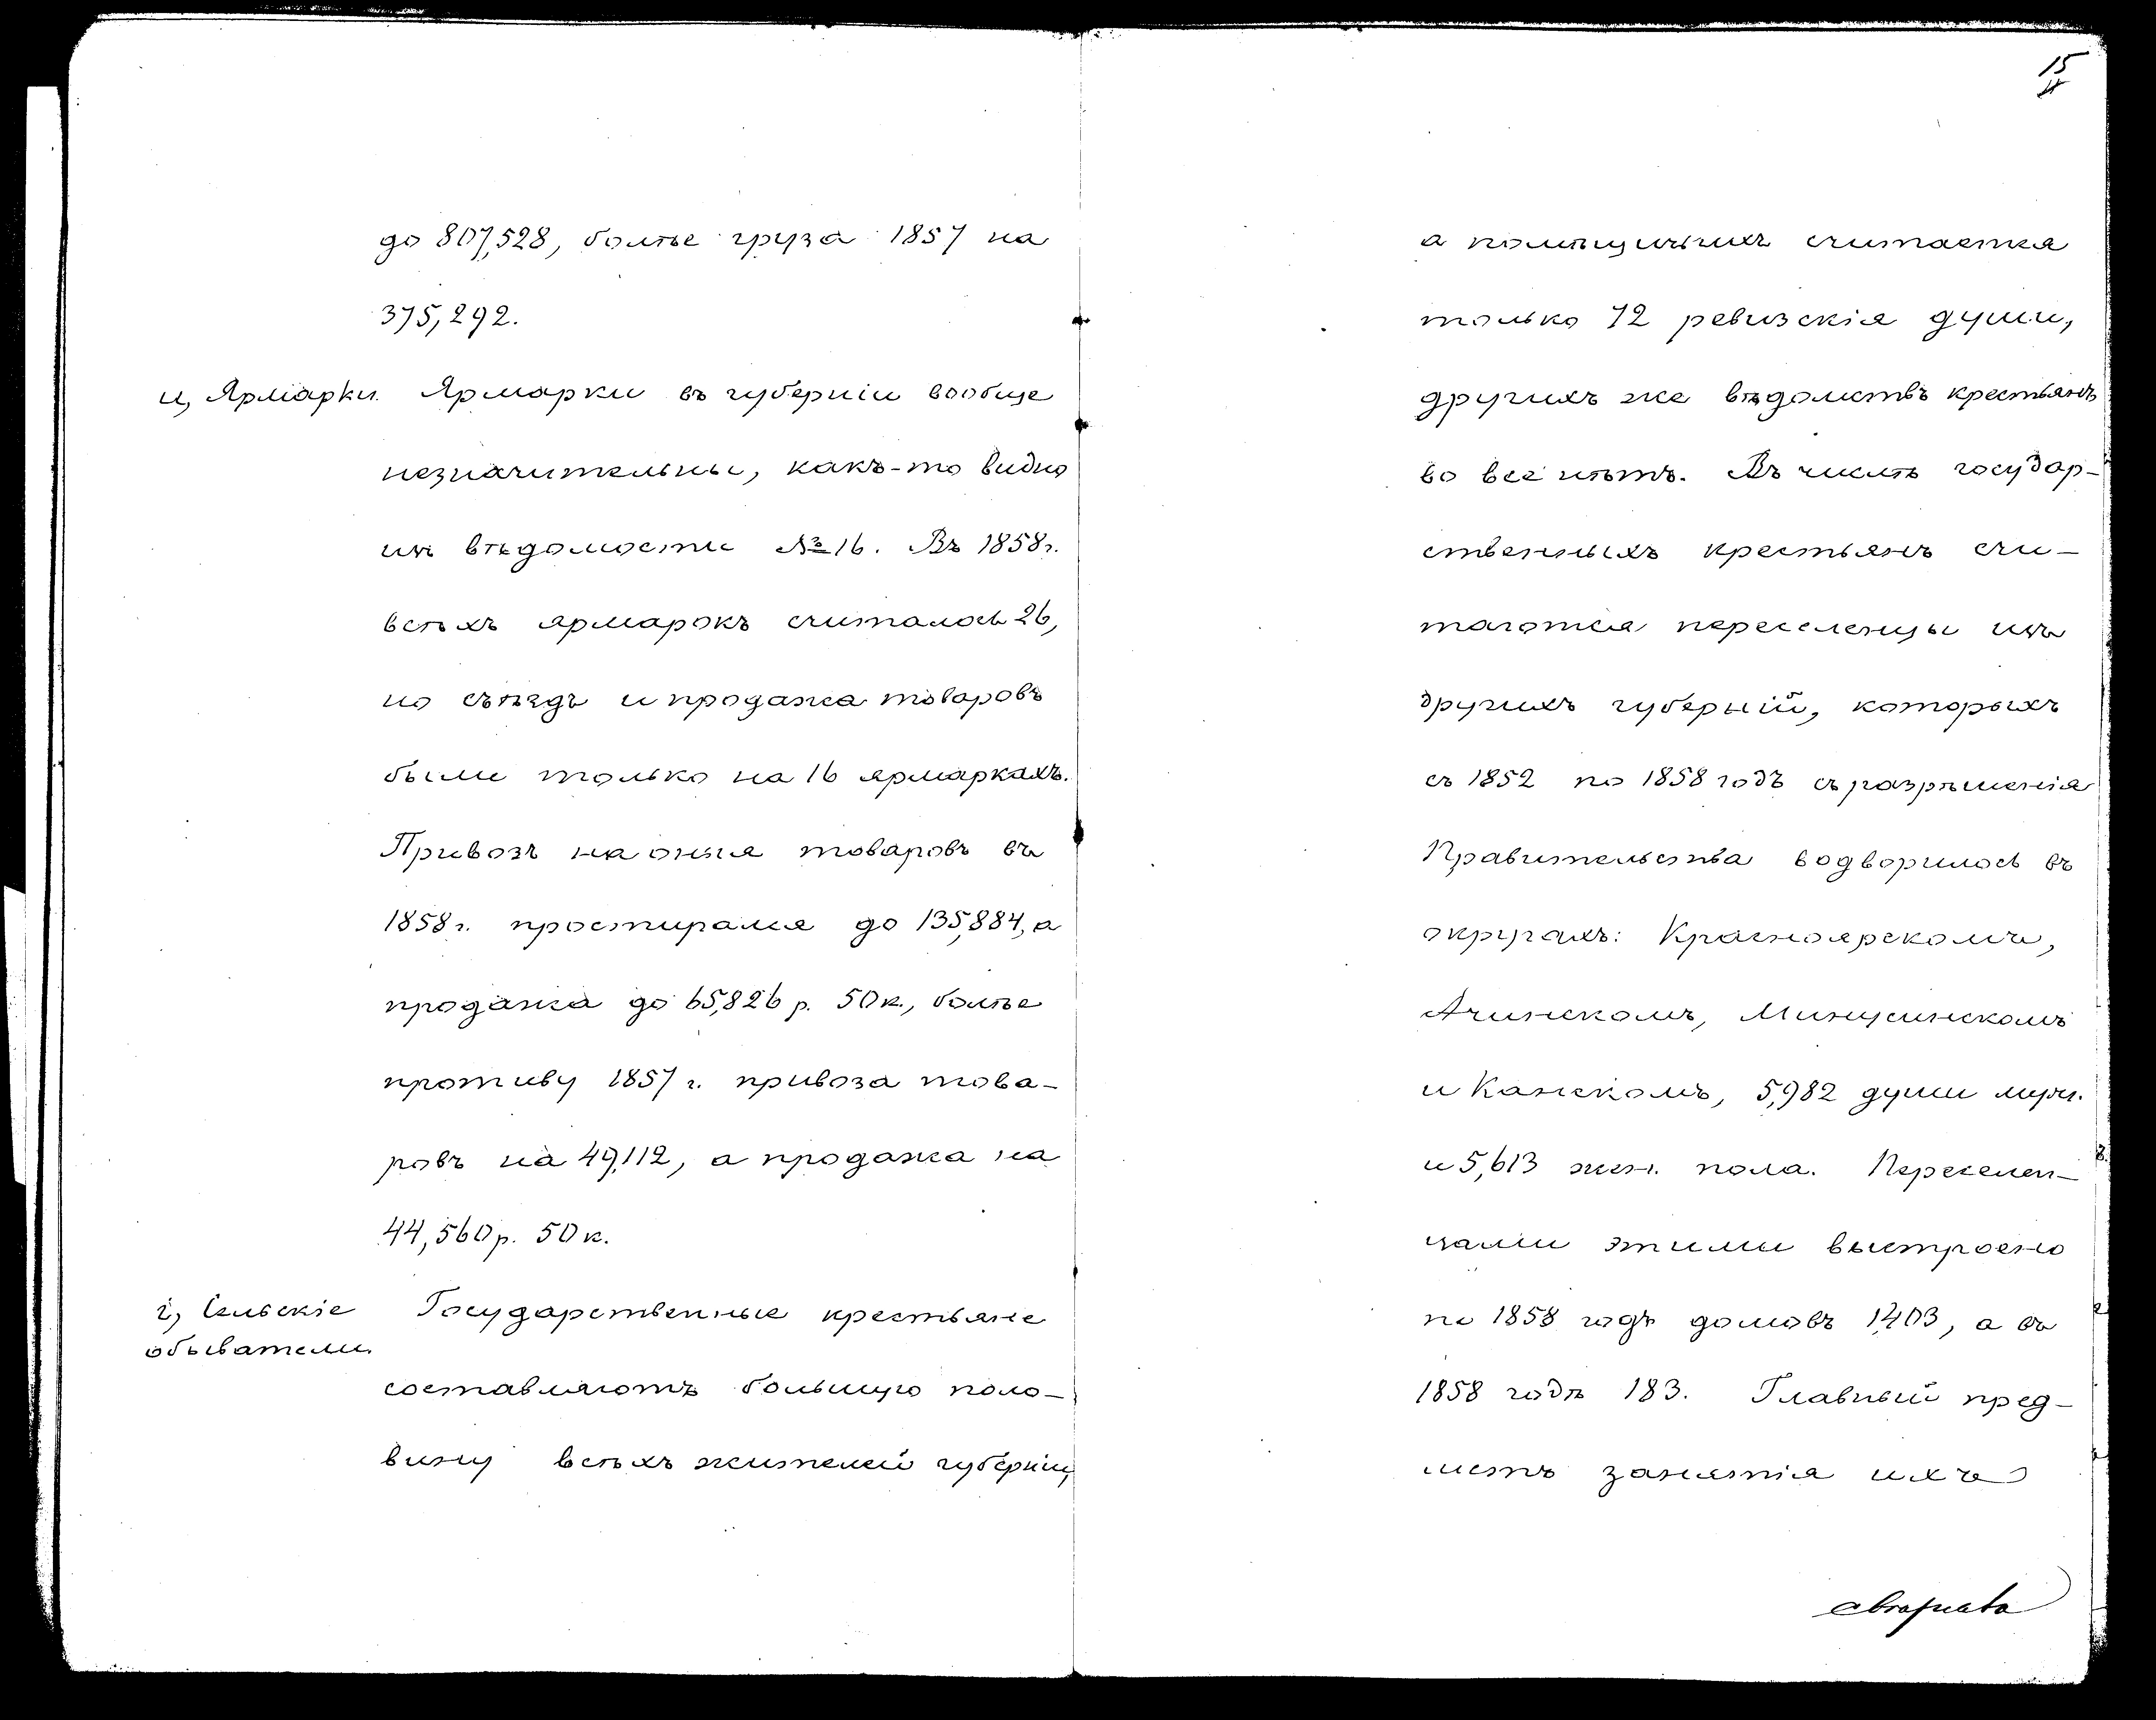 до 807,528, болѣе груза 1857 на
375,292.
и, Ярмарки. Ярмарки въ губерніи вообще
незначительны, какъ-то видно
изъ вѣдомости № 16. Въ 1858 г.
всѣхъ ярмарокъ считалось 26,
но съѣздъ и продажа товаровъ
были только на 16 ярмаркахъ.
Привозъ на оныя товаровъ въ
1858 г. простирался до 135,884, а
продажа до 65,826 р. 50 к., болѣе
противу 1857 г. привоза това-
ровъ на 49,112, а продажа на
44,560 р. 50 к.
і, Сельскіе
обыватели.
Государственные крестьяне
составляютъ большую поло-
вину всѣхъ жителей губерніи,
15
а помѣщичьихъ считается
только 72 ревизскія души,
другихъ же вѣдомствъ крестьянъ
во все нѣтъ. Въ числѣ государ-
ственныхъ крестьянъ счи-
таются переселенцы изъ
другихъ губерній, которыхъ
съ 1852 по 1858 годъ съ разрѣшенія
Правительства водворилось въ
округахъ: Красноярскомъ,
Ачинскомъ, Минусинскомъ
и Канскомъ, 5,982 души муж.
и 5,613 жен. пола. Переселен-
цами этими выстроено
по 1858 годъ домовъ 1,403, а въ
1858 годѣ 183. Главный пред-
метъ занятія ихъ